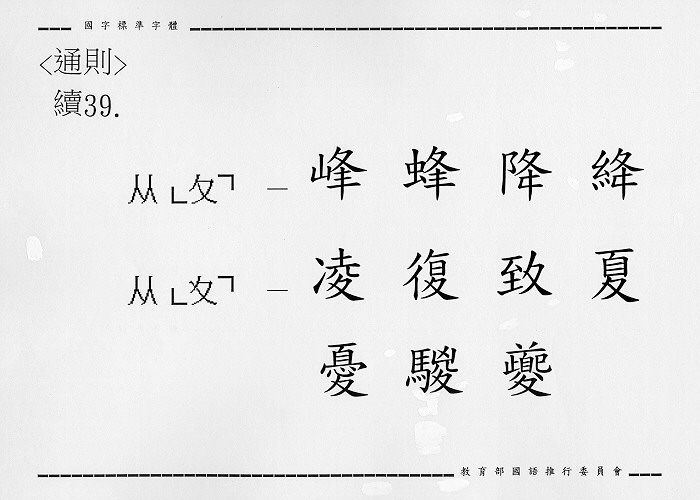 國字標準字體
<通則>
續39.
从「夂」—峰 蜂 降 絳
从「夊」—凌 復 致 夏
憂 騣 夔
教育部國語推行委員會